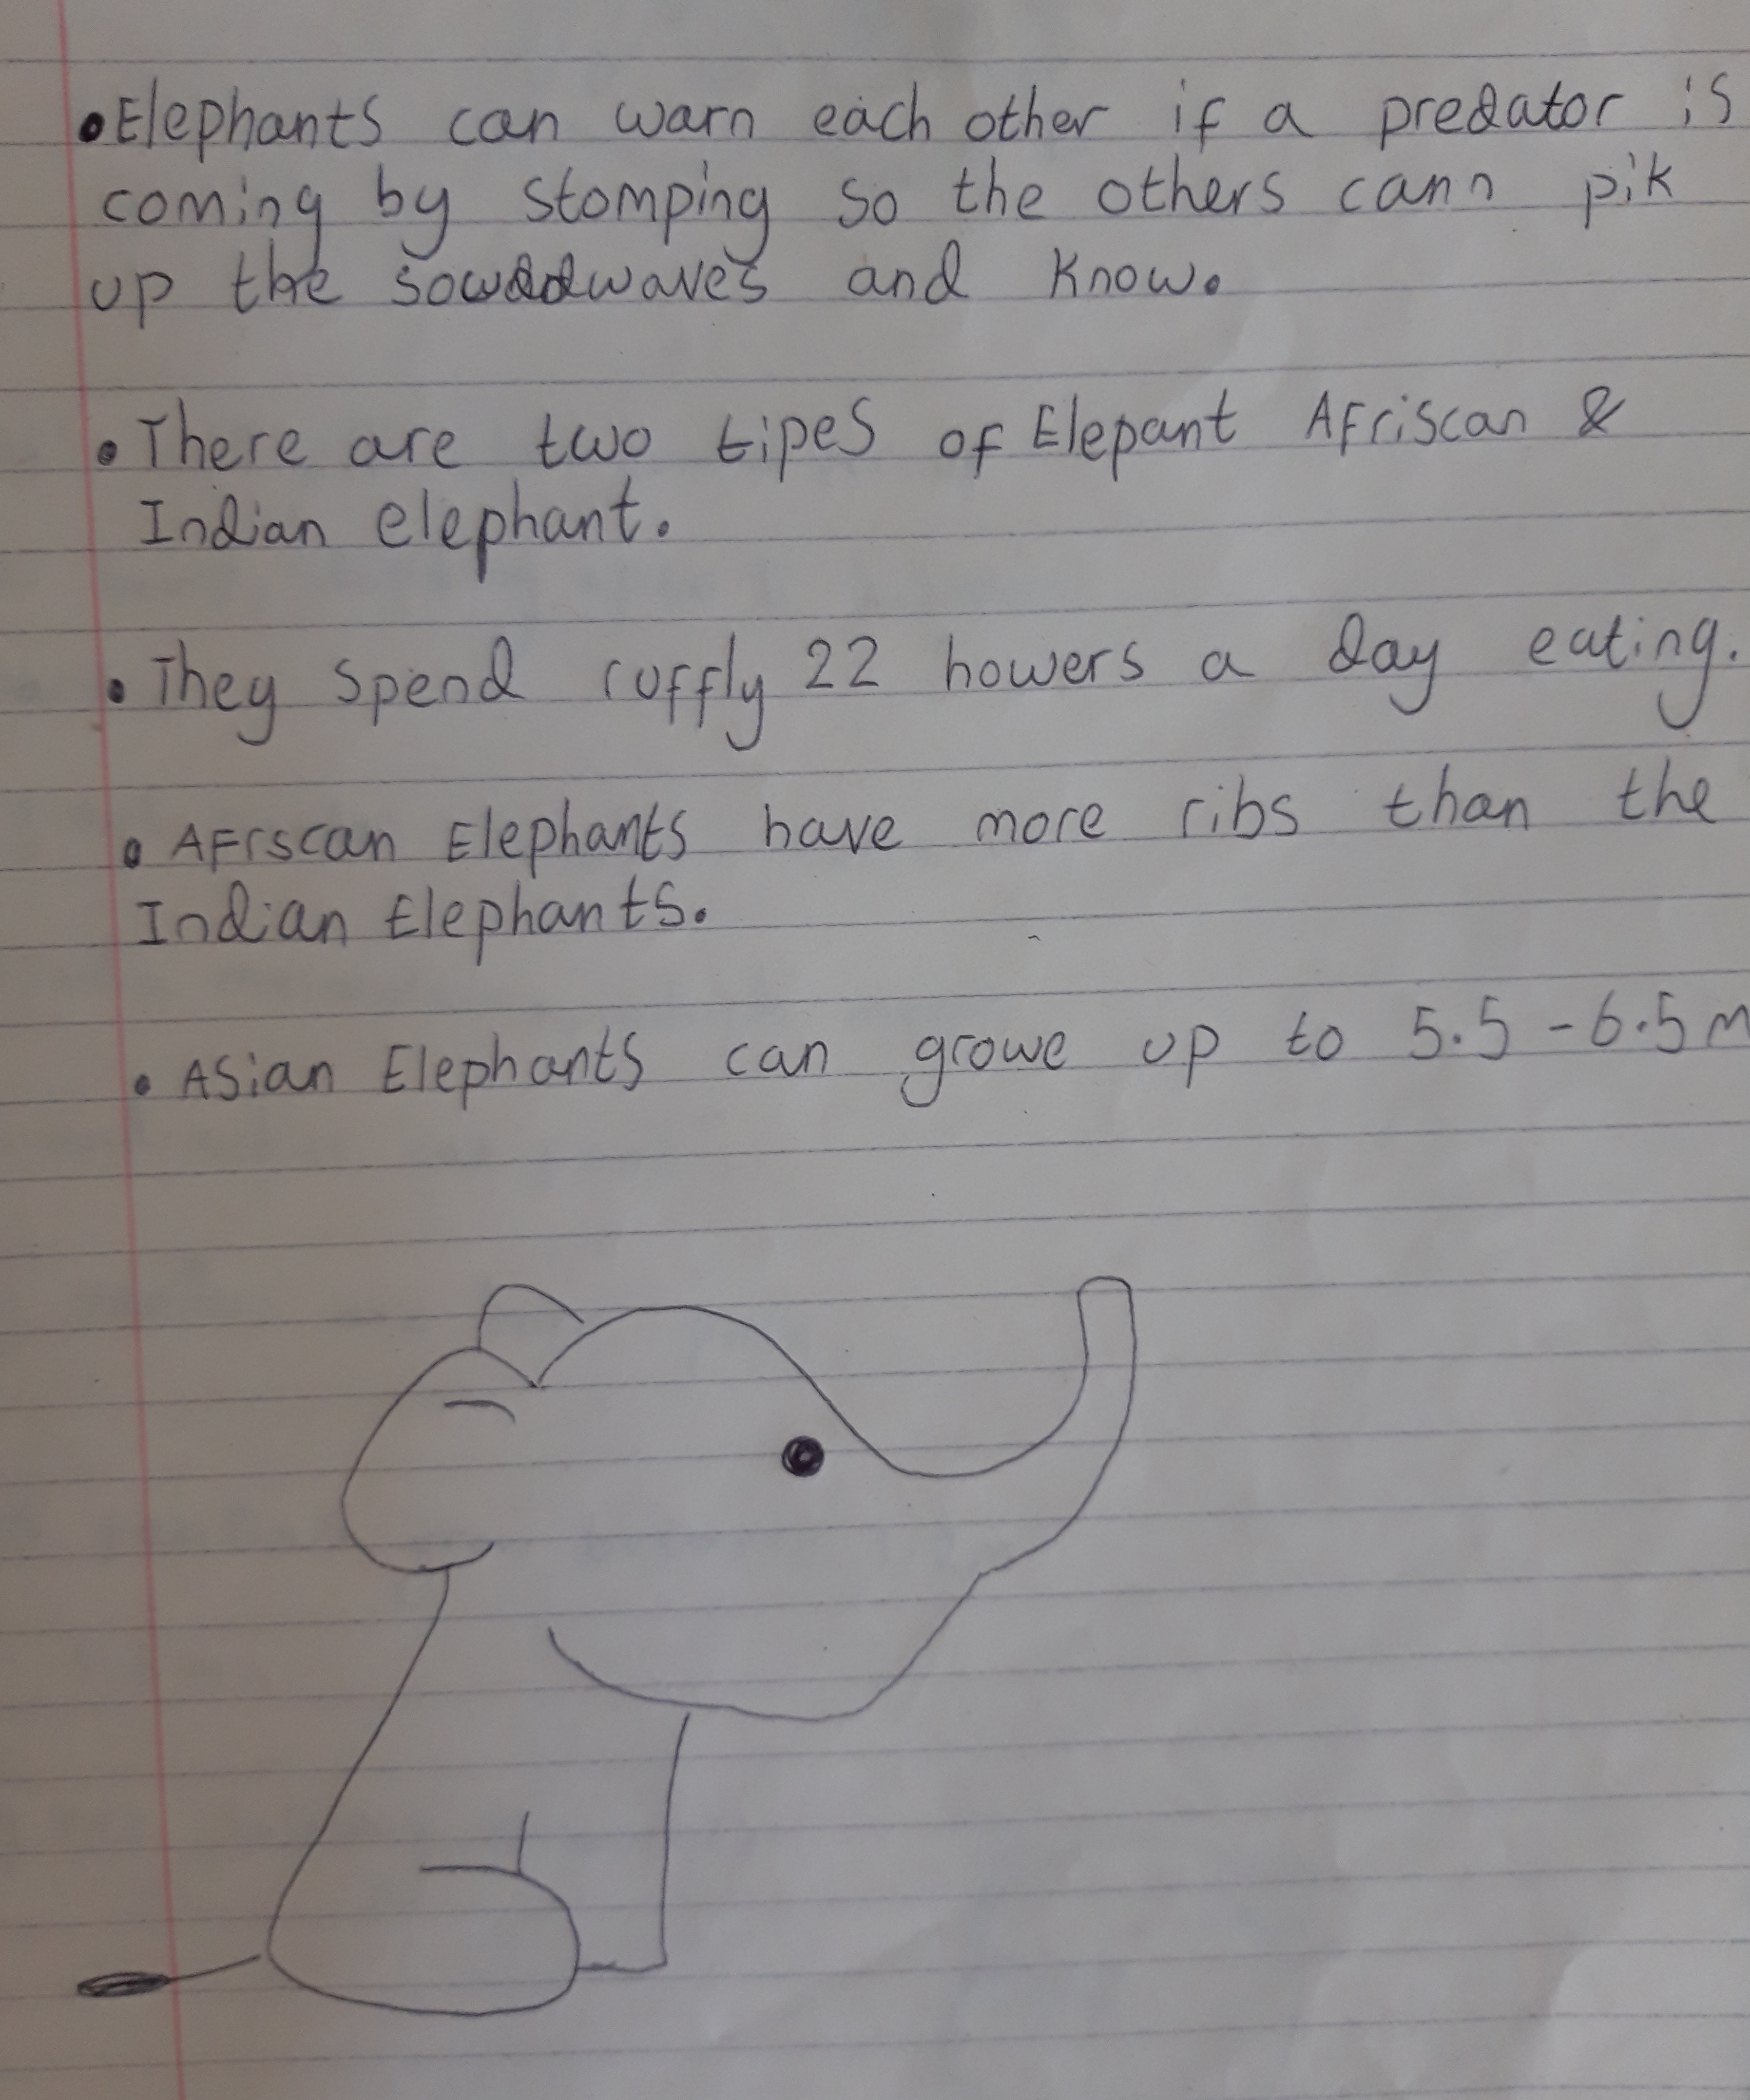 • Elephants can warn each other if a predator is
coming by stomping so the others cann pik
up the waves and know.
• There are two tipes of Elepant Afriscan &
Indian elephant.
• They spend ruffly 22 howers a day eating.
• Afrscan Elephants have more ribs than the
Indian Elephants.
• Asian Elephants can growe up to 5.5 - 6.5 m